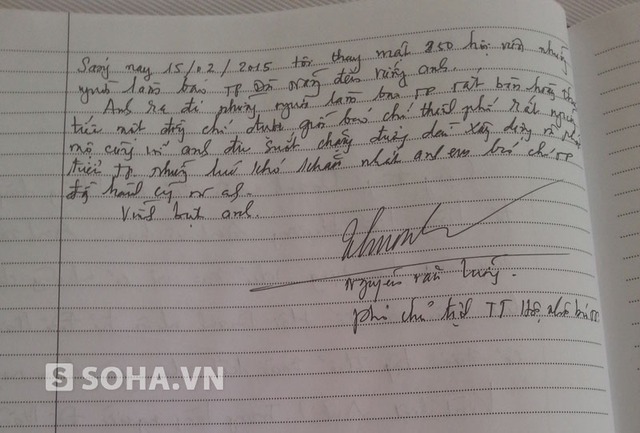 Sáng nay 15/02/2015 tôi thay mặt 850 hội viên những
người làm báo TP Đà Nẵng đến viếng anh.
Anh ra đi những người làm báo TP rất bàng hoàng
tiếc một đồng chí
mộ cùng với anh đi suốt chặng đường dài xây dựng và phát
triển TP những lúc khó khăn nhất anh em báo chí TP
đồng hành cùng với anh.
Vĩnh biệt anh.
Nguyễn Văn
phó chủ tịch TT Hội nhà báo
SOHA.VN